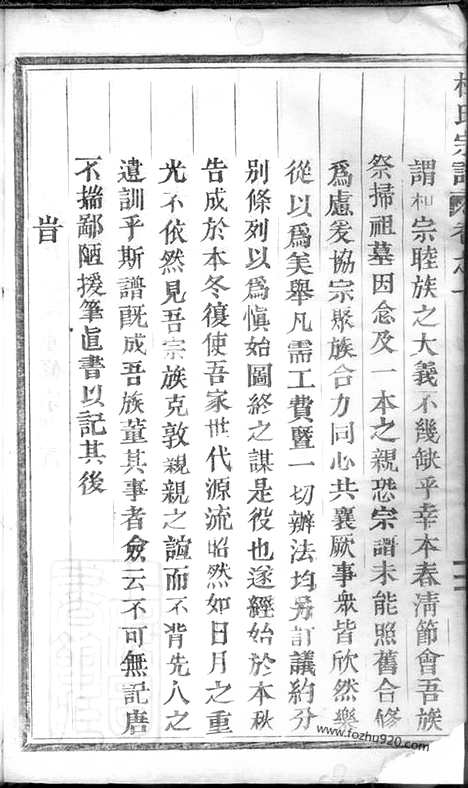 謂和宗睦族之大義不幾缺乎幸本春淸節會吾族
祭掃祖墓因念及一本之親恐宗譜未能照舊合修
爲慮爰協宗聚族合力同心共襄厥事衆皆欣然樂
從以爲美舉凡需工費曁一切辦法均另訂議約分
別條列以爲愼始圖終之謀是役也遂經始於本秋
告成於本冬復使吾家世代源流昭然如日月之重
光不依然見吾宗族克敦親親之誼而不背先人之
遺訓乎斯譜旣成吾族董其事者僉云不可無記唐
不揣鄙陋援筆直書以記其後
旹
氏宗譜 卷之一
www.fozhu920.com